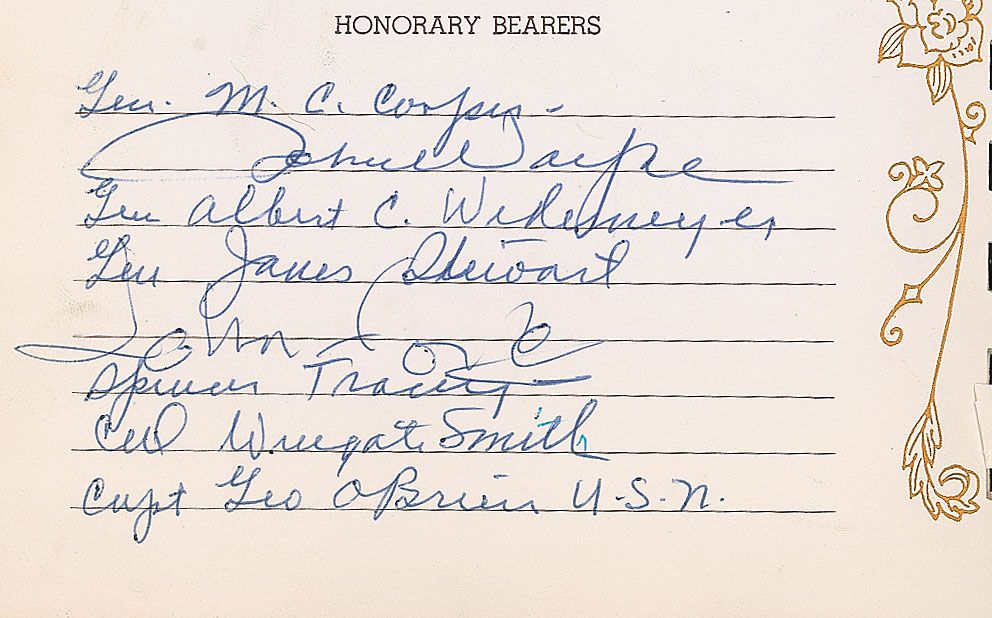 HONORARY BEARERS
Gen. M. C. Cooper -
John Wayne
Gen Albert C. Wedemeyer
Gen James Stewart
John Ford
Spencer Tracy
Col Wingate Smith
Capt Geo O'Brien U.S.N.